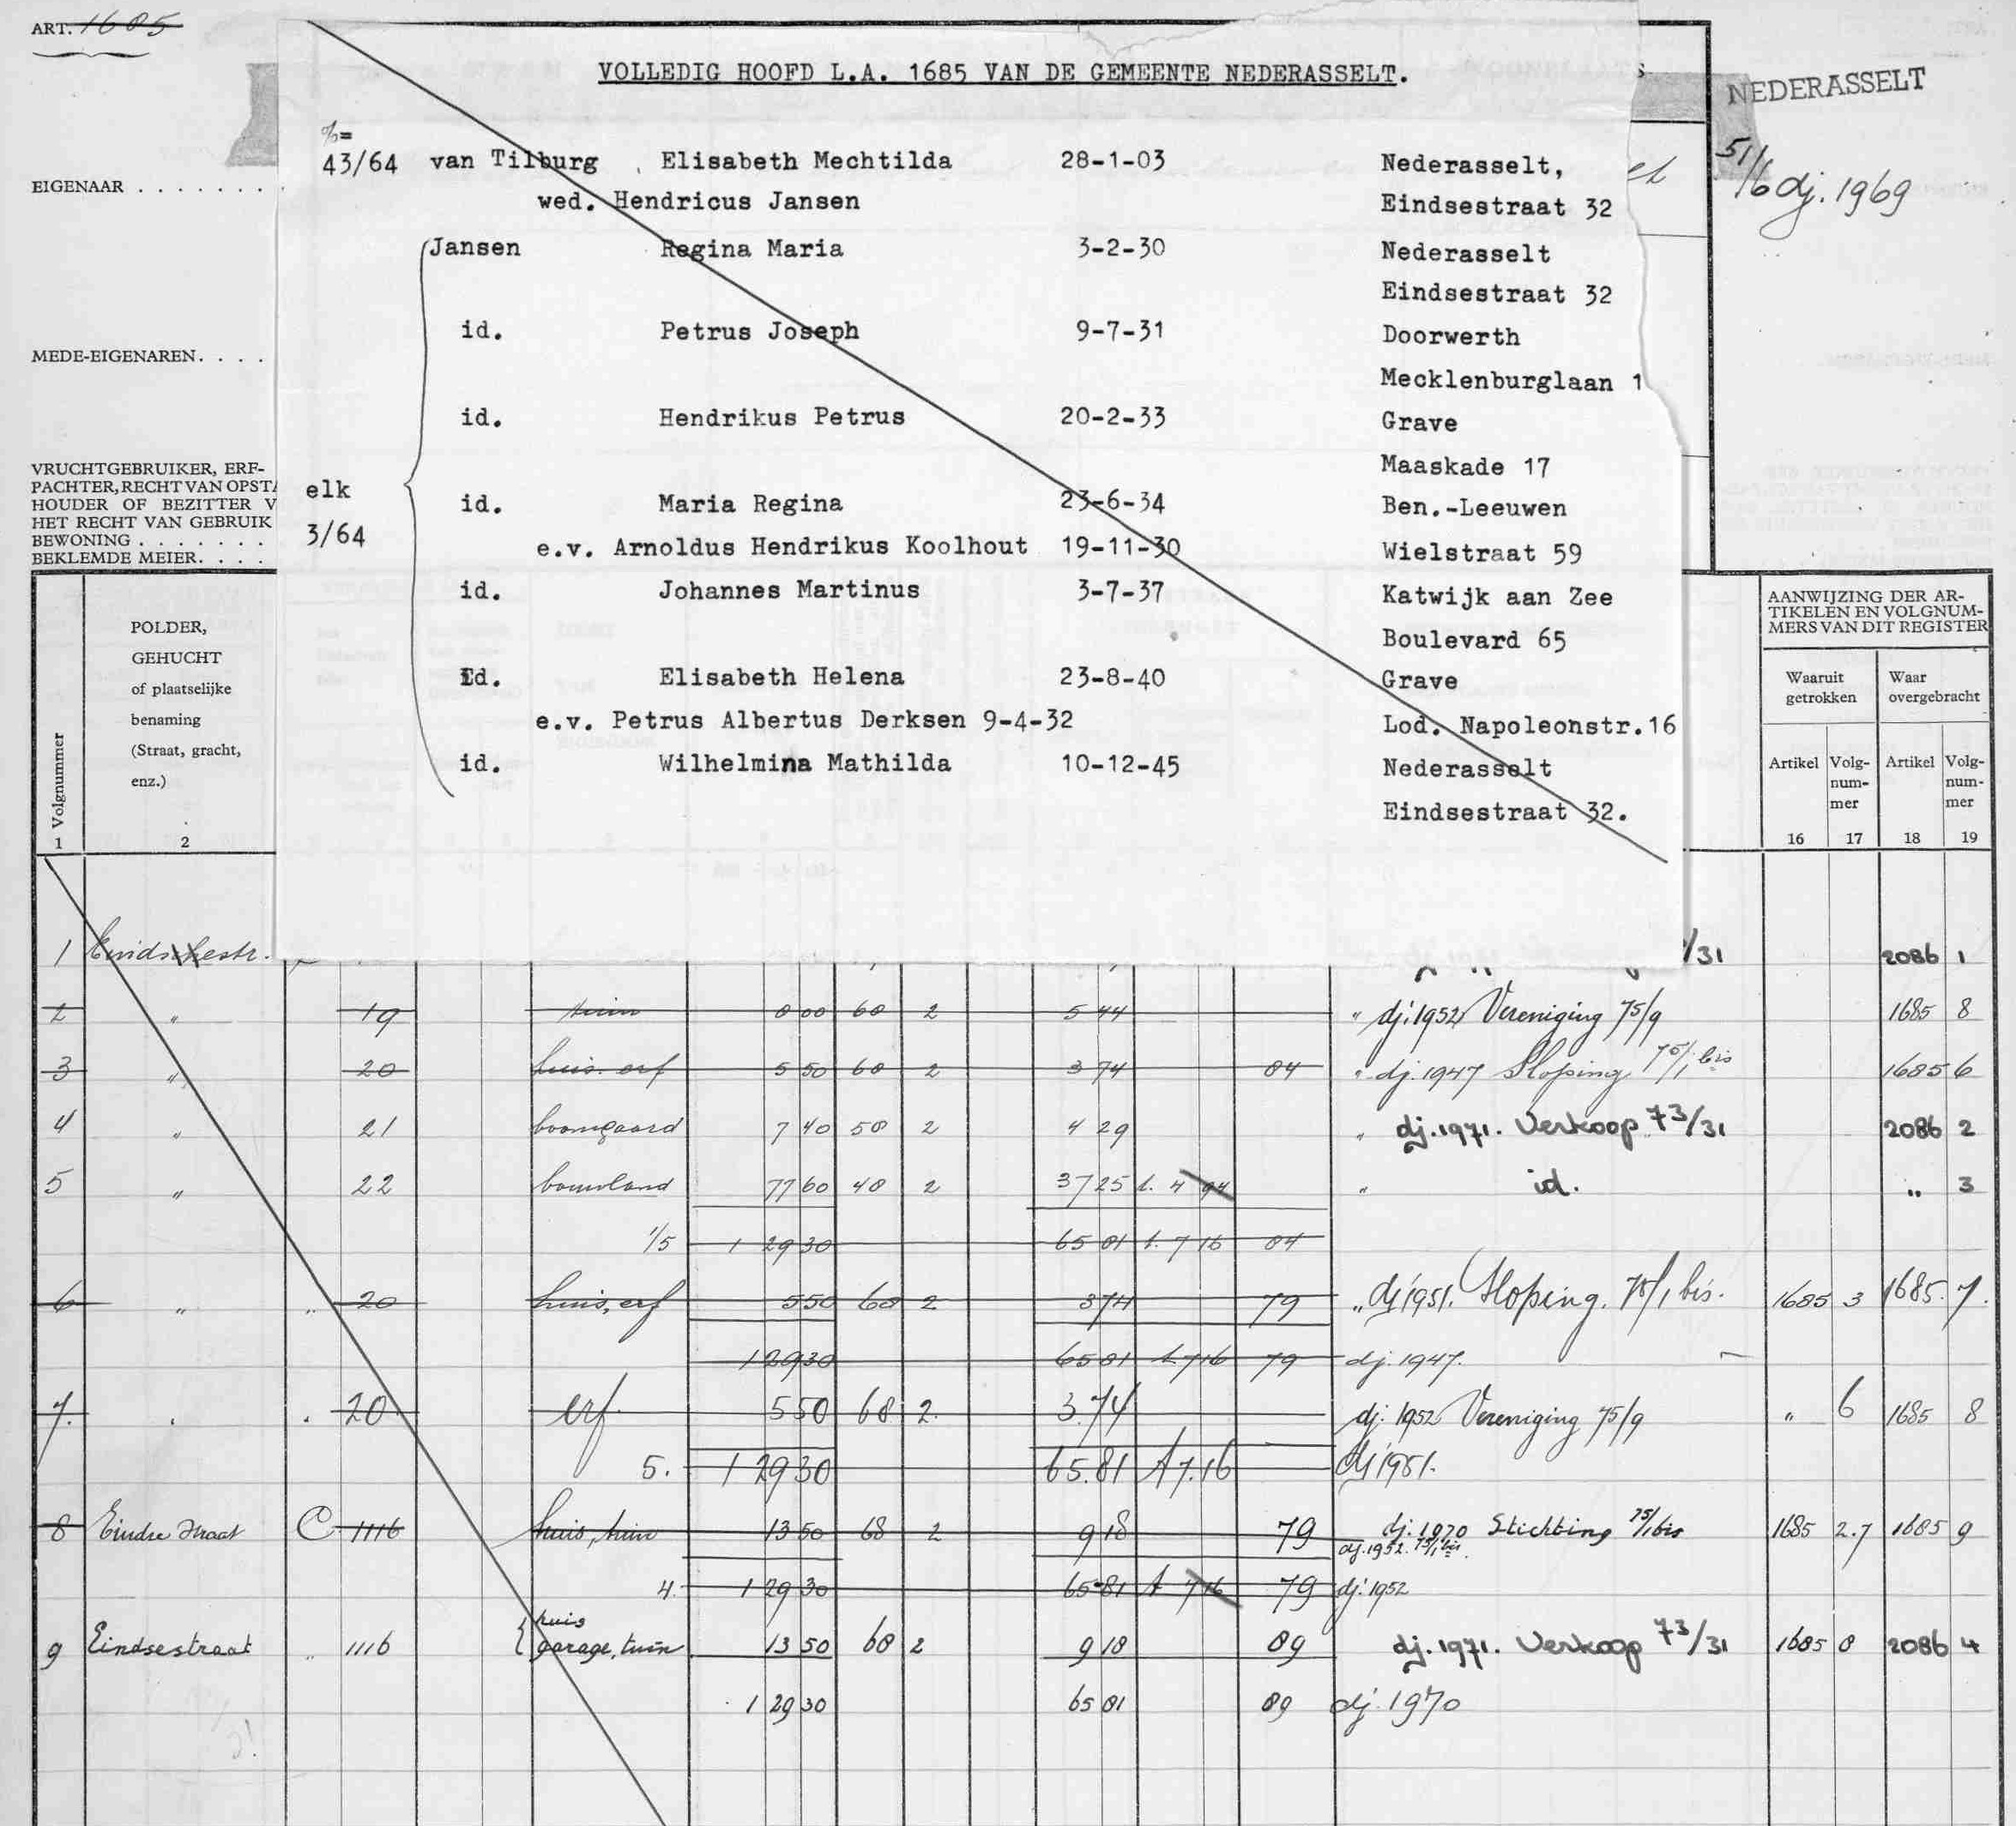 ART. 1685
VOLLEDIG HOOFD L.A. 1685 VAN DE GEMEENTE NEDERASSELT.
NEDERASSELT
51/6 dj. 1969
43/64 van Tilburg Elisabeth Mechtilda 28-1-03 Nederasselt,
wed. Hendricus Jansen Eindsestraat 32
EIGENAAR . . . . . . . .
Jansen Regina Maria 3-2-30 Nederasselt
Eindsestraat 32
id. Petrus Joseph 9-7-31 Doorwerth
MEDE-EIGENAREN. . . .
Mecklenburglaan 1
id. Hendrikus Petrus 20-2-33 Grave
Maaskade 17
VRUCHTGEBRUIKER, ERF-
PACHTER, RECHT VAN OPST
HOUDER OF BEZITTER V
HET RECHT VAN GEBRUIK
BEWONING . . . . . . .
BEKLEMDE MEIER. . . .
elk
3/64
id. Maria Regina 23-6-34 Ben.-Leeuwen
e.v. Arnoldus Hendrikus Koolhout 19-11-30 Wielstraat 59
id. Johannes Martinus 3-7-37 Katwijk aan Zee
Boulevard 65
id. Elisabeth Helena 23-8-40 Grave
e.v. Petrus Albertus Derksen 9-4-32 Lod. Napoleonstr.16
id. Wilhelmina Mathilda 10-12-45 Nederasselt
Eindsestraat 32.
Volgnummer
POLDER,
GEHUCHT
of plaatselijke
benaming
(Straat, gracht,
enz.)
AANWIJZING DER AR-
TIKELEN EN VOLGNUM-
MERS VAN DIT REGISTER
Waaruit
getrokken
Waar
overgebracht
Artikel Volg-
num-
mer
Artikel Volg-
num-
mer
1 2 16 17 18 19
1 Eindschestr. /31 2086 1
2 " 19 tuin 8 00 68 2 5 44 " dj. 1952 Vereniging 75/9 1685 8
3 " 20 huis. erf 5 50 68 2 3 74 84 " dj. 1947 Sloping 75/1 bis 1685 6
4 " 21 boomgaard 7 40 58 2 4 29 " dj. 1971. Verkoop 73/31 2086 2
5 " 22 bouwland 77 60 48 2 37 25 l. 4 94 " id. " 3
1/5 1 29 30 65 81 l. 7 16 84
6 " " 20 huis, erf 5 50 68 2 3 74 79 " dj 1951. Sloping. 75/1 bis. 1685 3 1685. 7.
1 29 30 65 81 l. 7 16 79 dj. 1947.
7. " " 20 erf 5 50 68 2. 3.74 dj. 1952 Vereniging 75/9 " 6 1685 8
5. 1 29 30 65.81 A 7.16 dj 1951.
8 Eindse straat C 1116 huis, tuin 13 50 68 2 9 18 79 dj. 1970 Stichting 75/1 bis 1685 2.7 1685 9
dj. 1952. 75/1 bis.
4. 1 29 30 65 81 A 7 16 79 dj. 1952
huis
9 Eindsestraat " 1116 garage, tuin 13 50 68 2 9 18 89 dj. 1971. Verkoop 73/31 1685 8 2086 4
1 29 30 65 81 89 dj. 1970